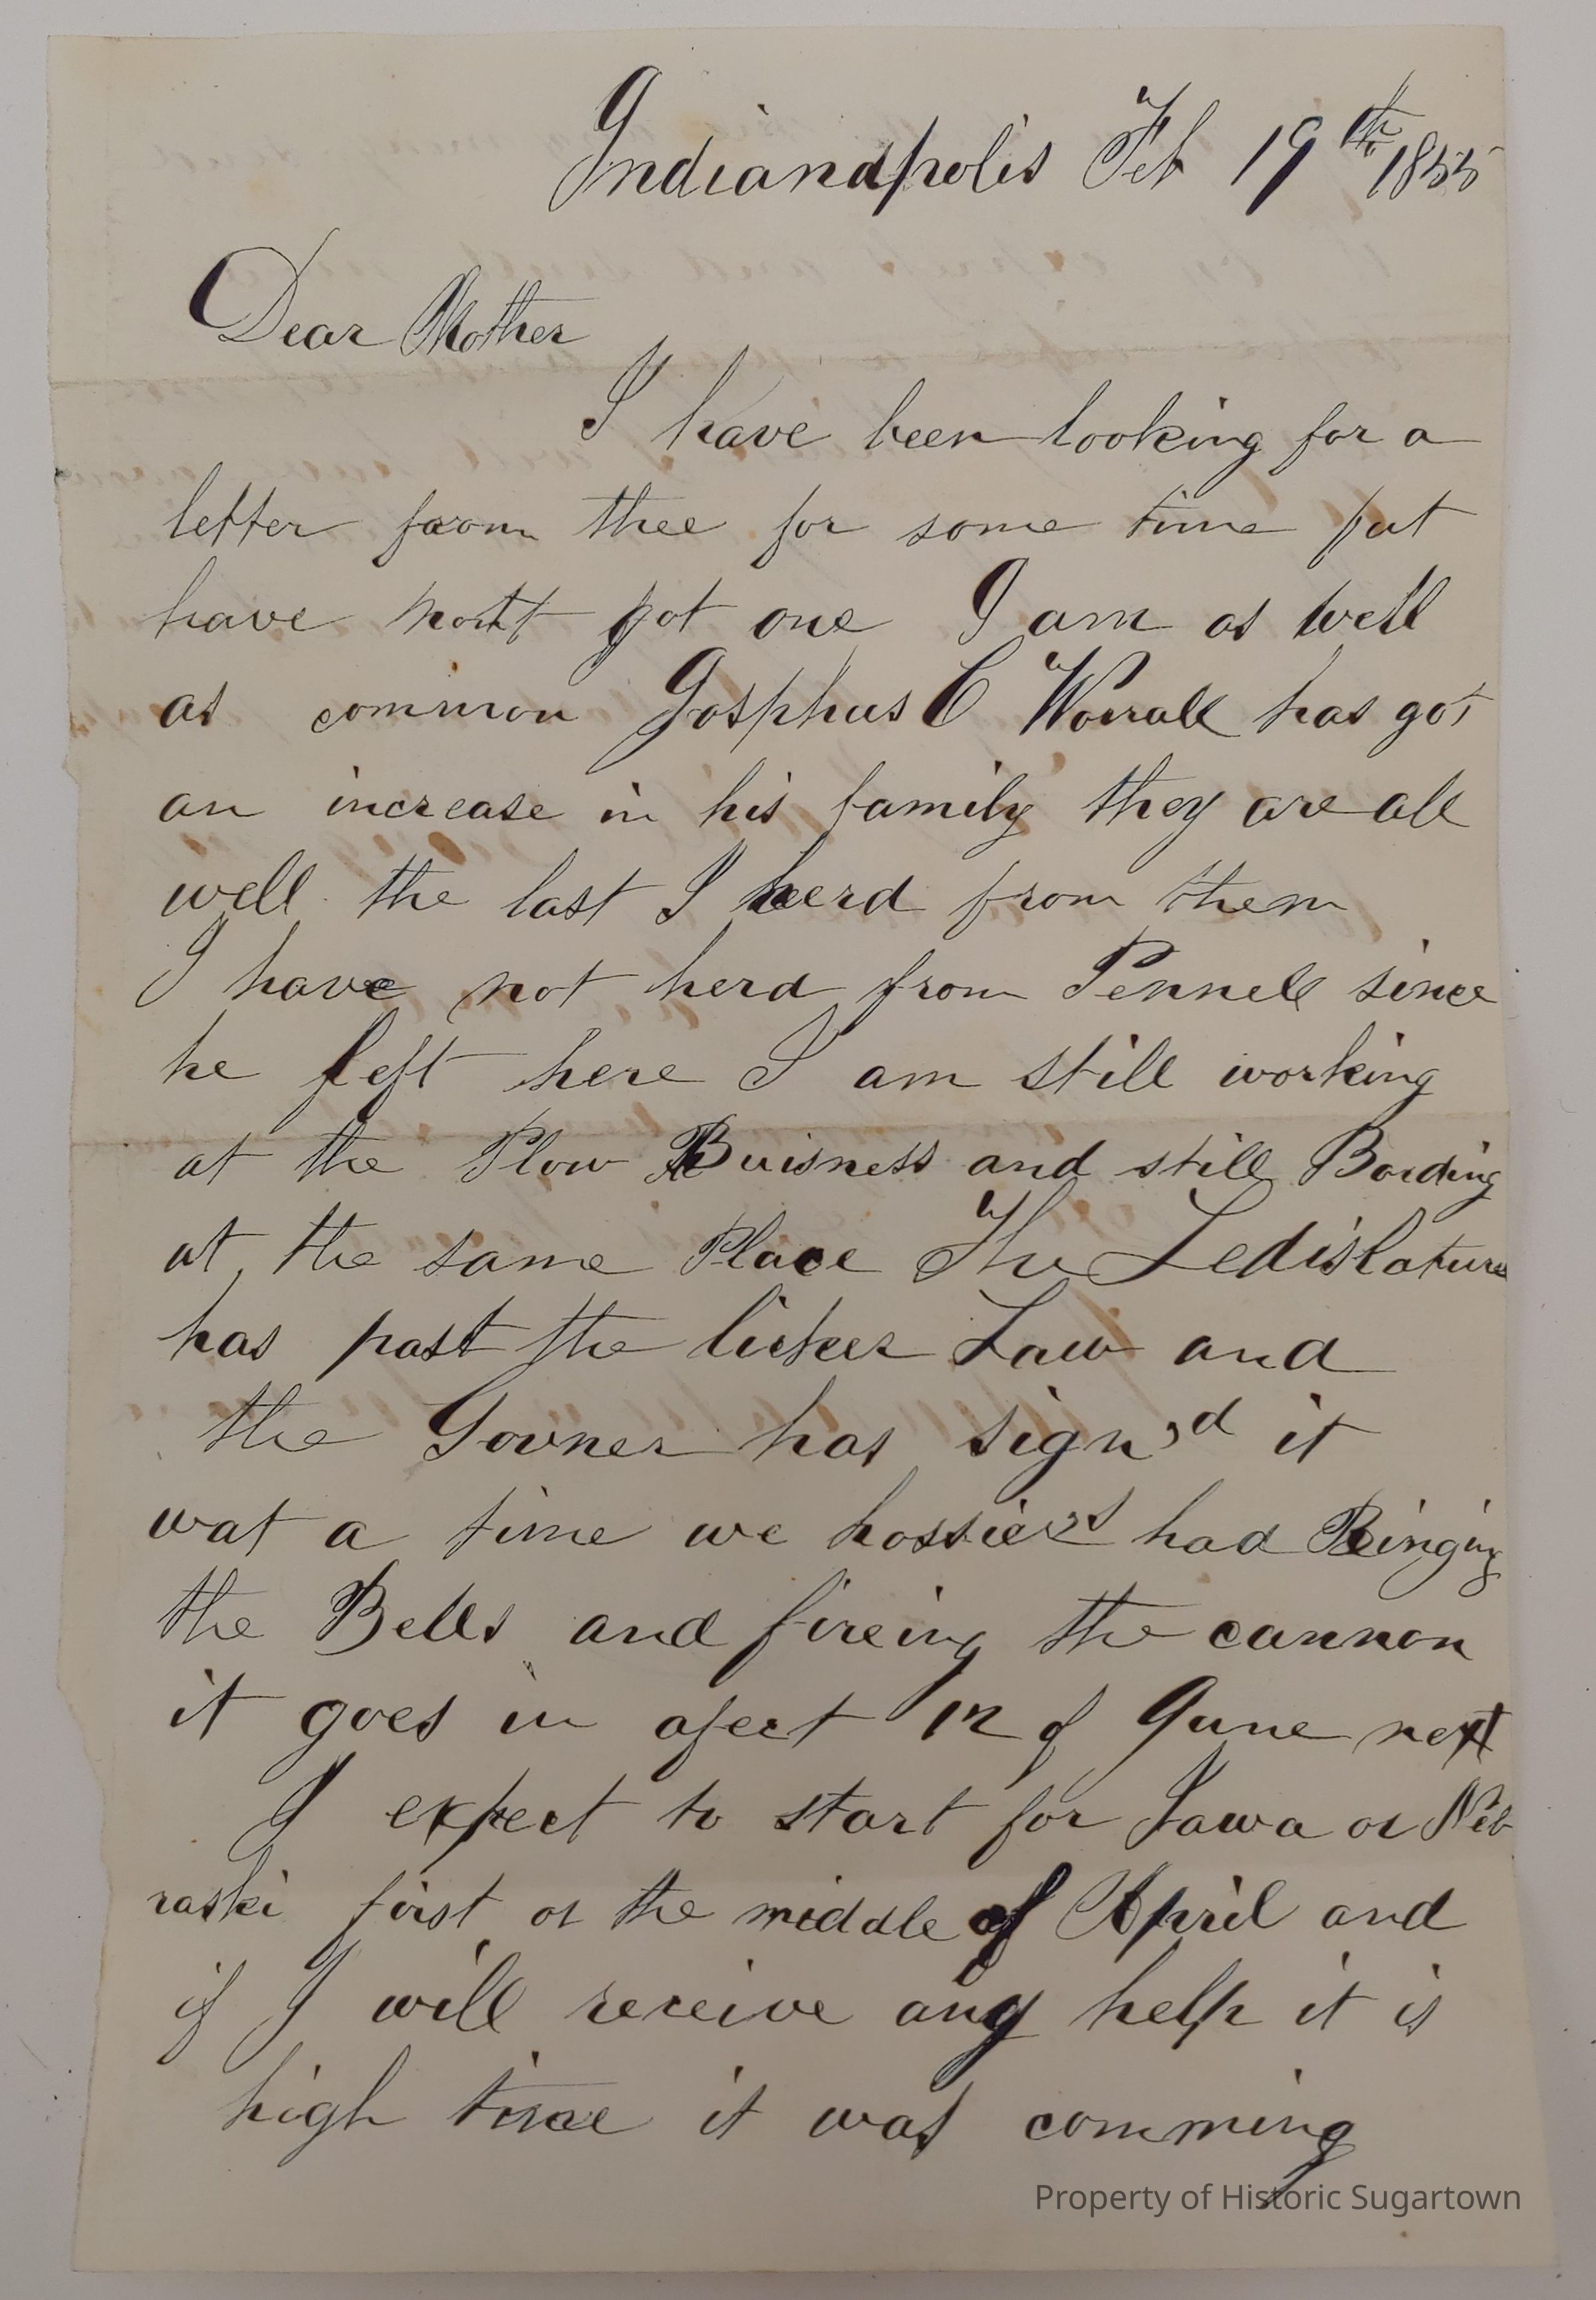 Indianapolis Feb 19th 1855
Dear Mother
I have been looking for a
letter from thee for some time but
have not got one I am as well
as common Josphus C Worrall has got
an increase in his family they are all
well the last I heerd from them
I have not herd from Pennell since
he left here I am still working
at the Plow Buisness and still Bording
at the same Place The Ledislature
has past the licker Law and
the Govner has sign,d it
wat a time we hossiers had Ringing
the Bells and fireing the cannon
it goes in afect 12 of June next
I expect to start for Iawa or Neb
raski first or the middle of April and
if I will receive any help it is
high time it was comming
Property of Historic Sugartown